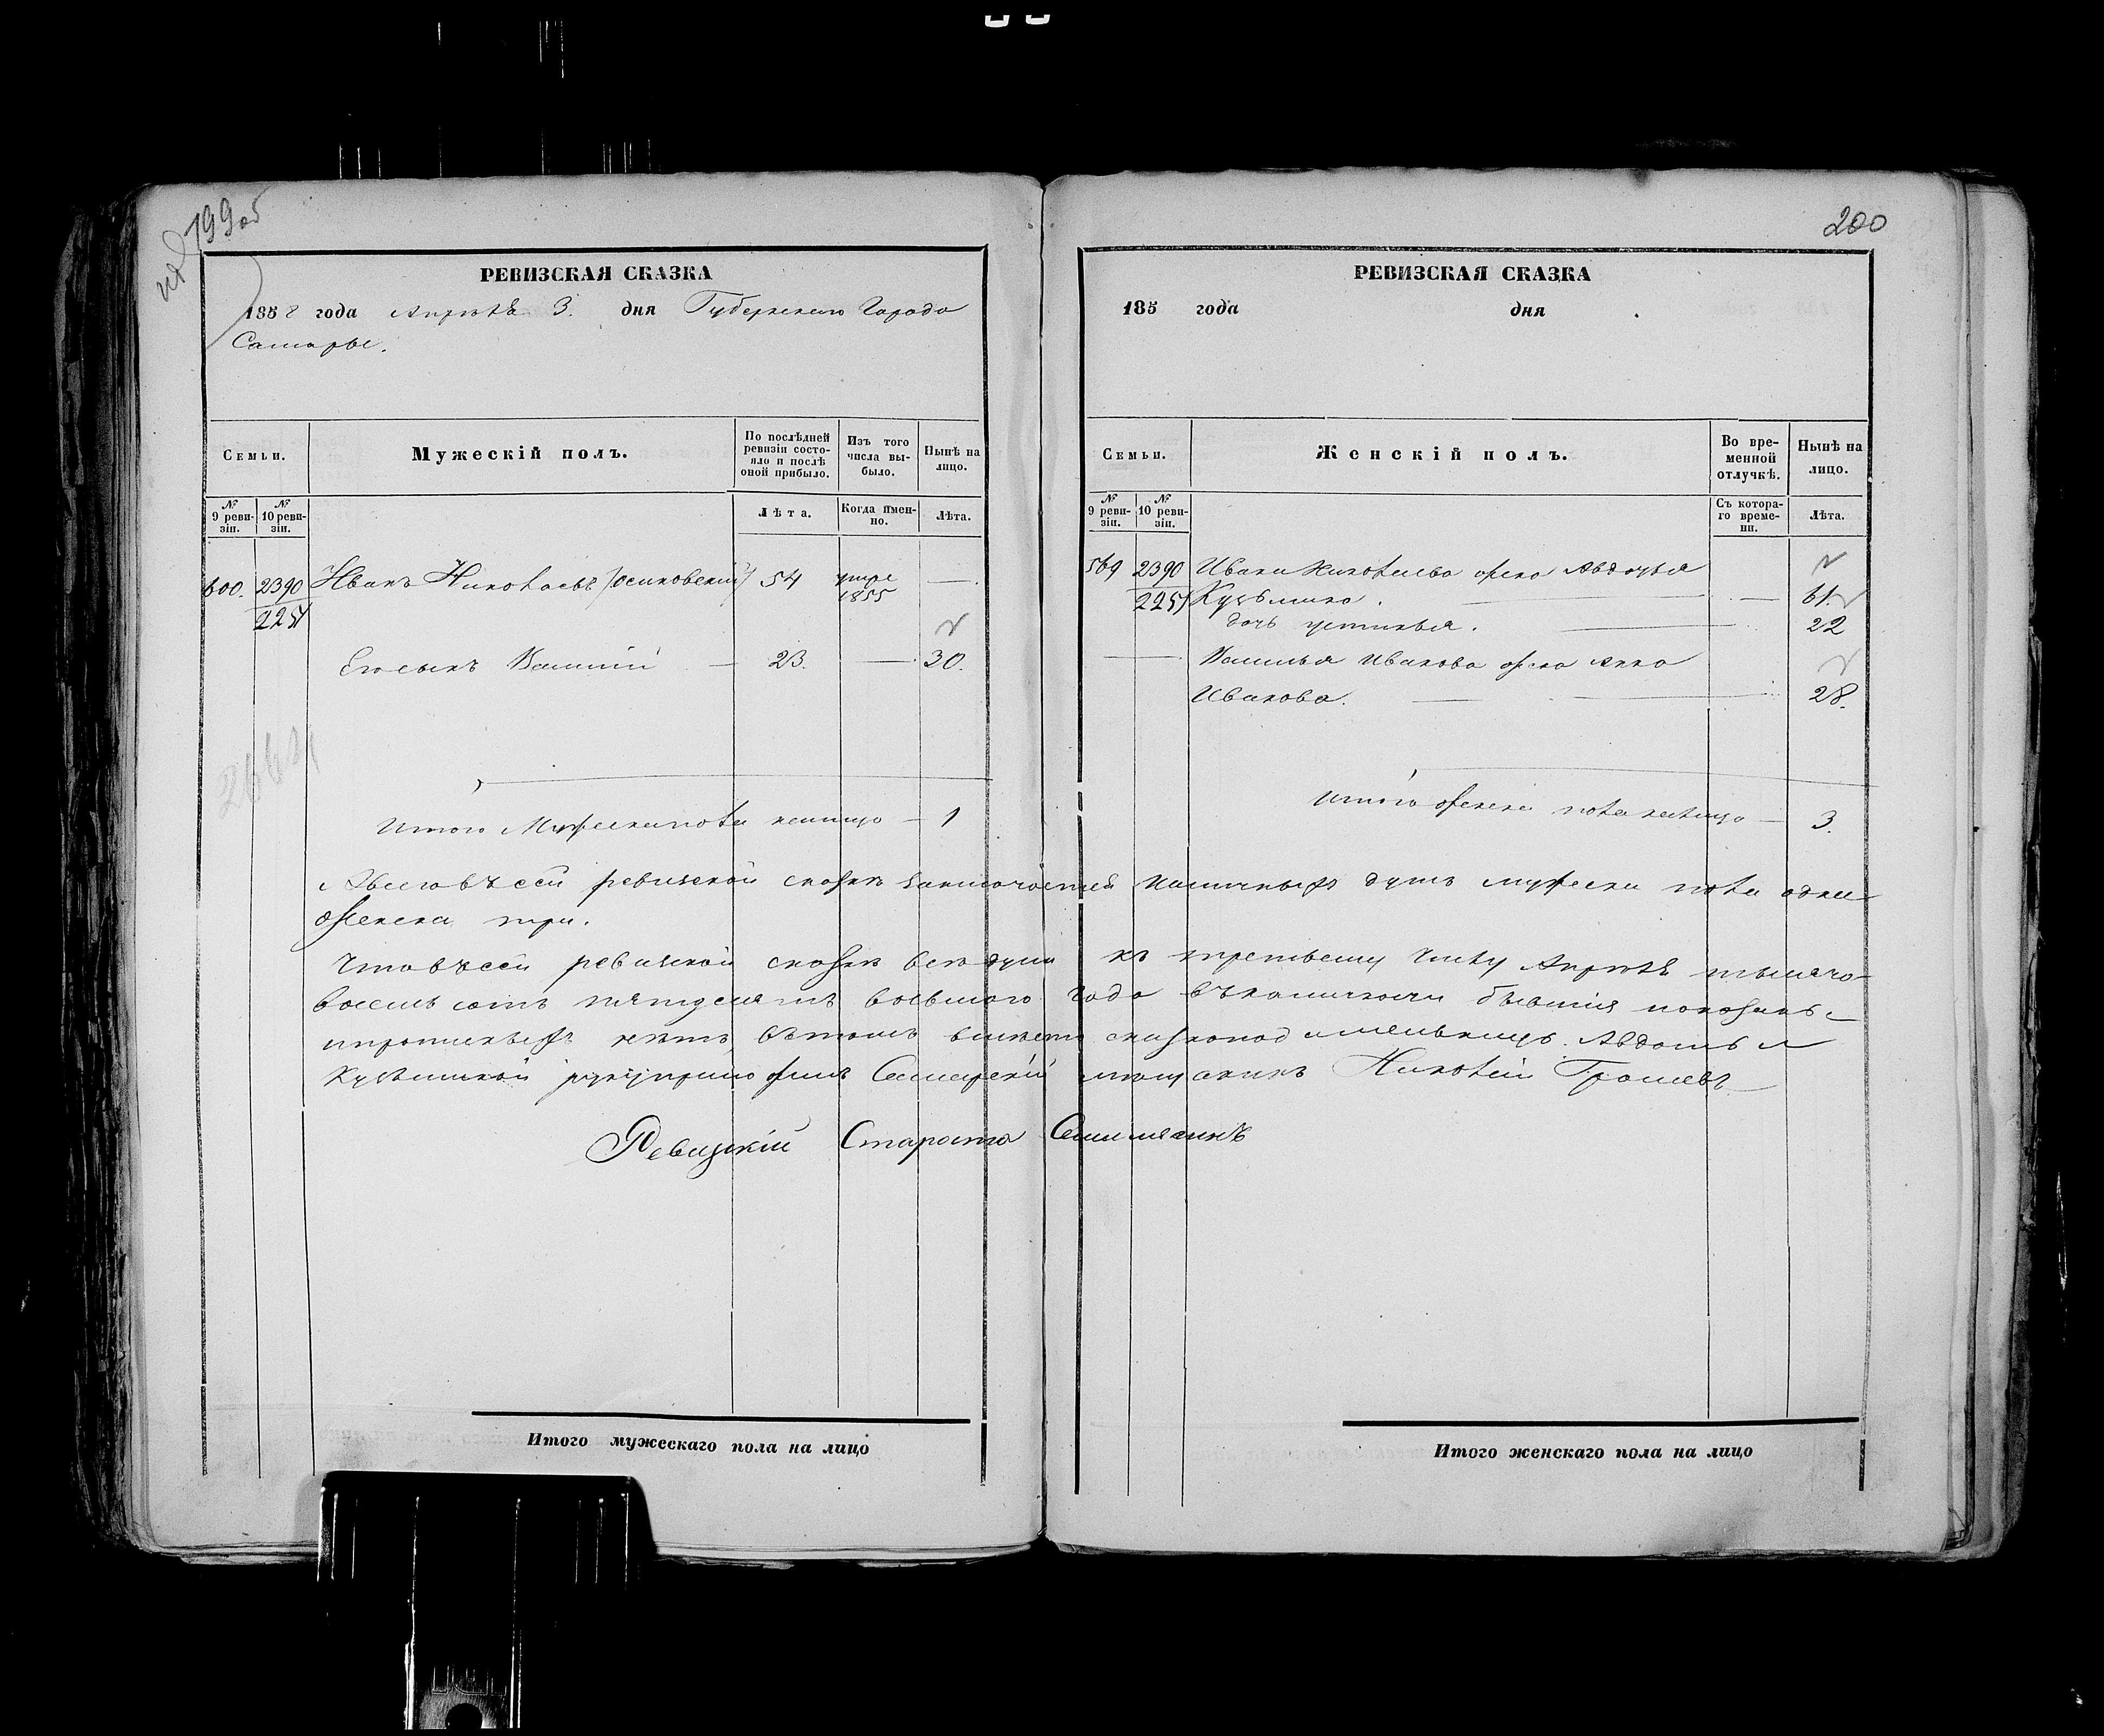 199об
РЕВИЗСКАЯ СКАЗКА
1858 года Апрѣля 3. дня Губернскаго Города
Самары.
Семьи.
Мужескій полъ.
По послѣдней ревизіи состояло и послѣ оной прибыло.
Изъ того числа выбыло.
Нынѣ на лицо.
№ 9 ревизіи.
№ 10 ревизіи.
Лѣта.
Когда имянно.
Лѣта.
600. 2390 Иванъ Николаевъ (Осиповский) 54 умре 1855 —
2251
Его сынъ Василій — 23. — 30.
Итого Мужеска пола налицо — 1
200
РЕВИЗСКАЯ СКАЗКА
185 года дня
Семьи.
Женскій полъ.
Во временной отлучкѣ.
Нынѣ на лицо.
№ 9 ревизіи.
№ 10 ревизіи.
Съ котораго времени.
Лѣта.
569 2390 Ивана Николаева жена Авдотья
2251 Кузьмина. — 61.
дочь Устинья. — 22
Василья Иванова жена Анна
Иванова. — 28.
Итого женска пола налицо — 3.
А всего въ сей ревизской сказкѣ заключается наличныхъ душъ мужска пола одна
женска три.
Что въ сей ревизской сказкѣ всѣ души къ третьему числу Апрѣля тысяча
восемь сотъ пятдесятъ восьмого года въ наличности бывшія показаны
и прописныхъ нѣтъ, въ томъ вмѣсто сказкоподательницы Авдотьи
Кузьминой руку приложилъ Самарскій мѣщанинъ Николай Грошевъ
Ревизскій Староста
Итого мужескаго пола на лицо
Итого женскаго пола на лицо